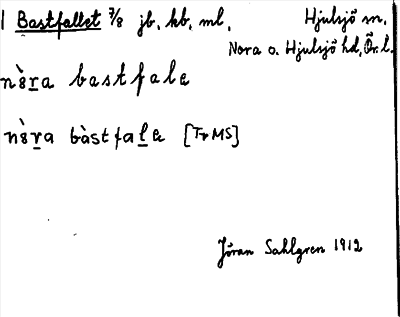 1 Bastfallet 7/8 jb, kb, ml,
Hjulsjö sn,
Nora o. Hjulsjö hd, Ör. l.
bastfale
bàstfale [Tr MS]
Jöran Sahlgren 1912